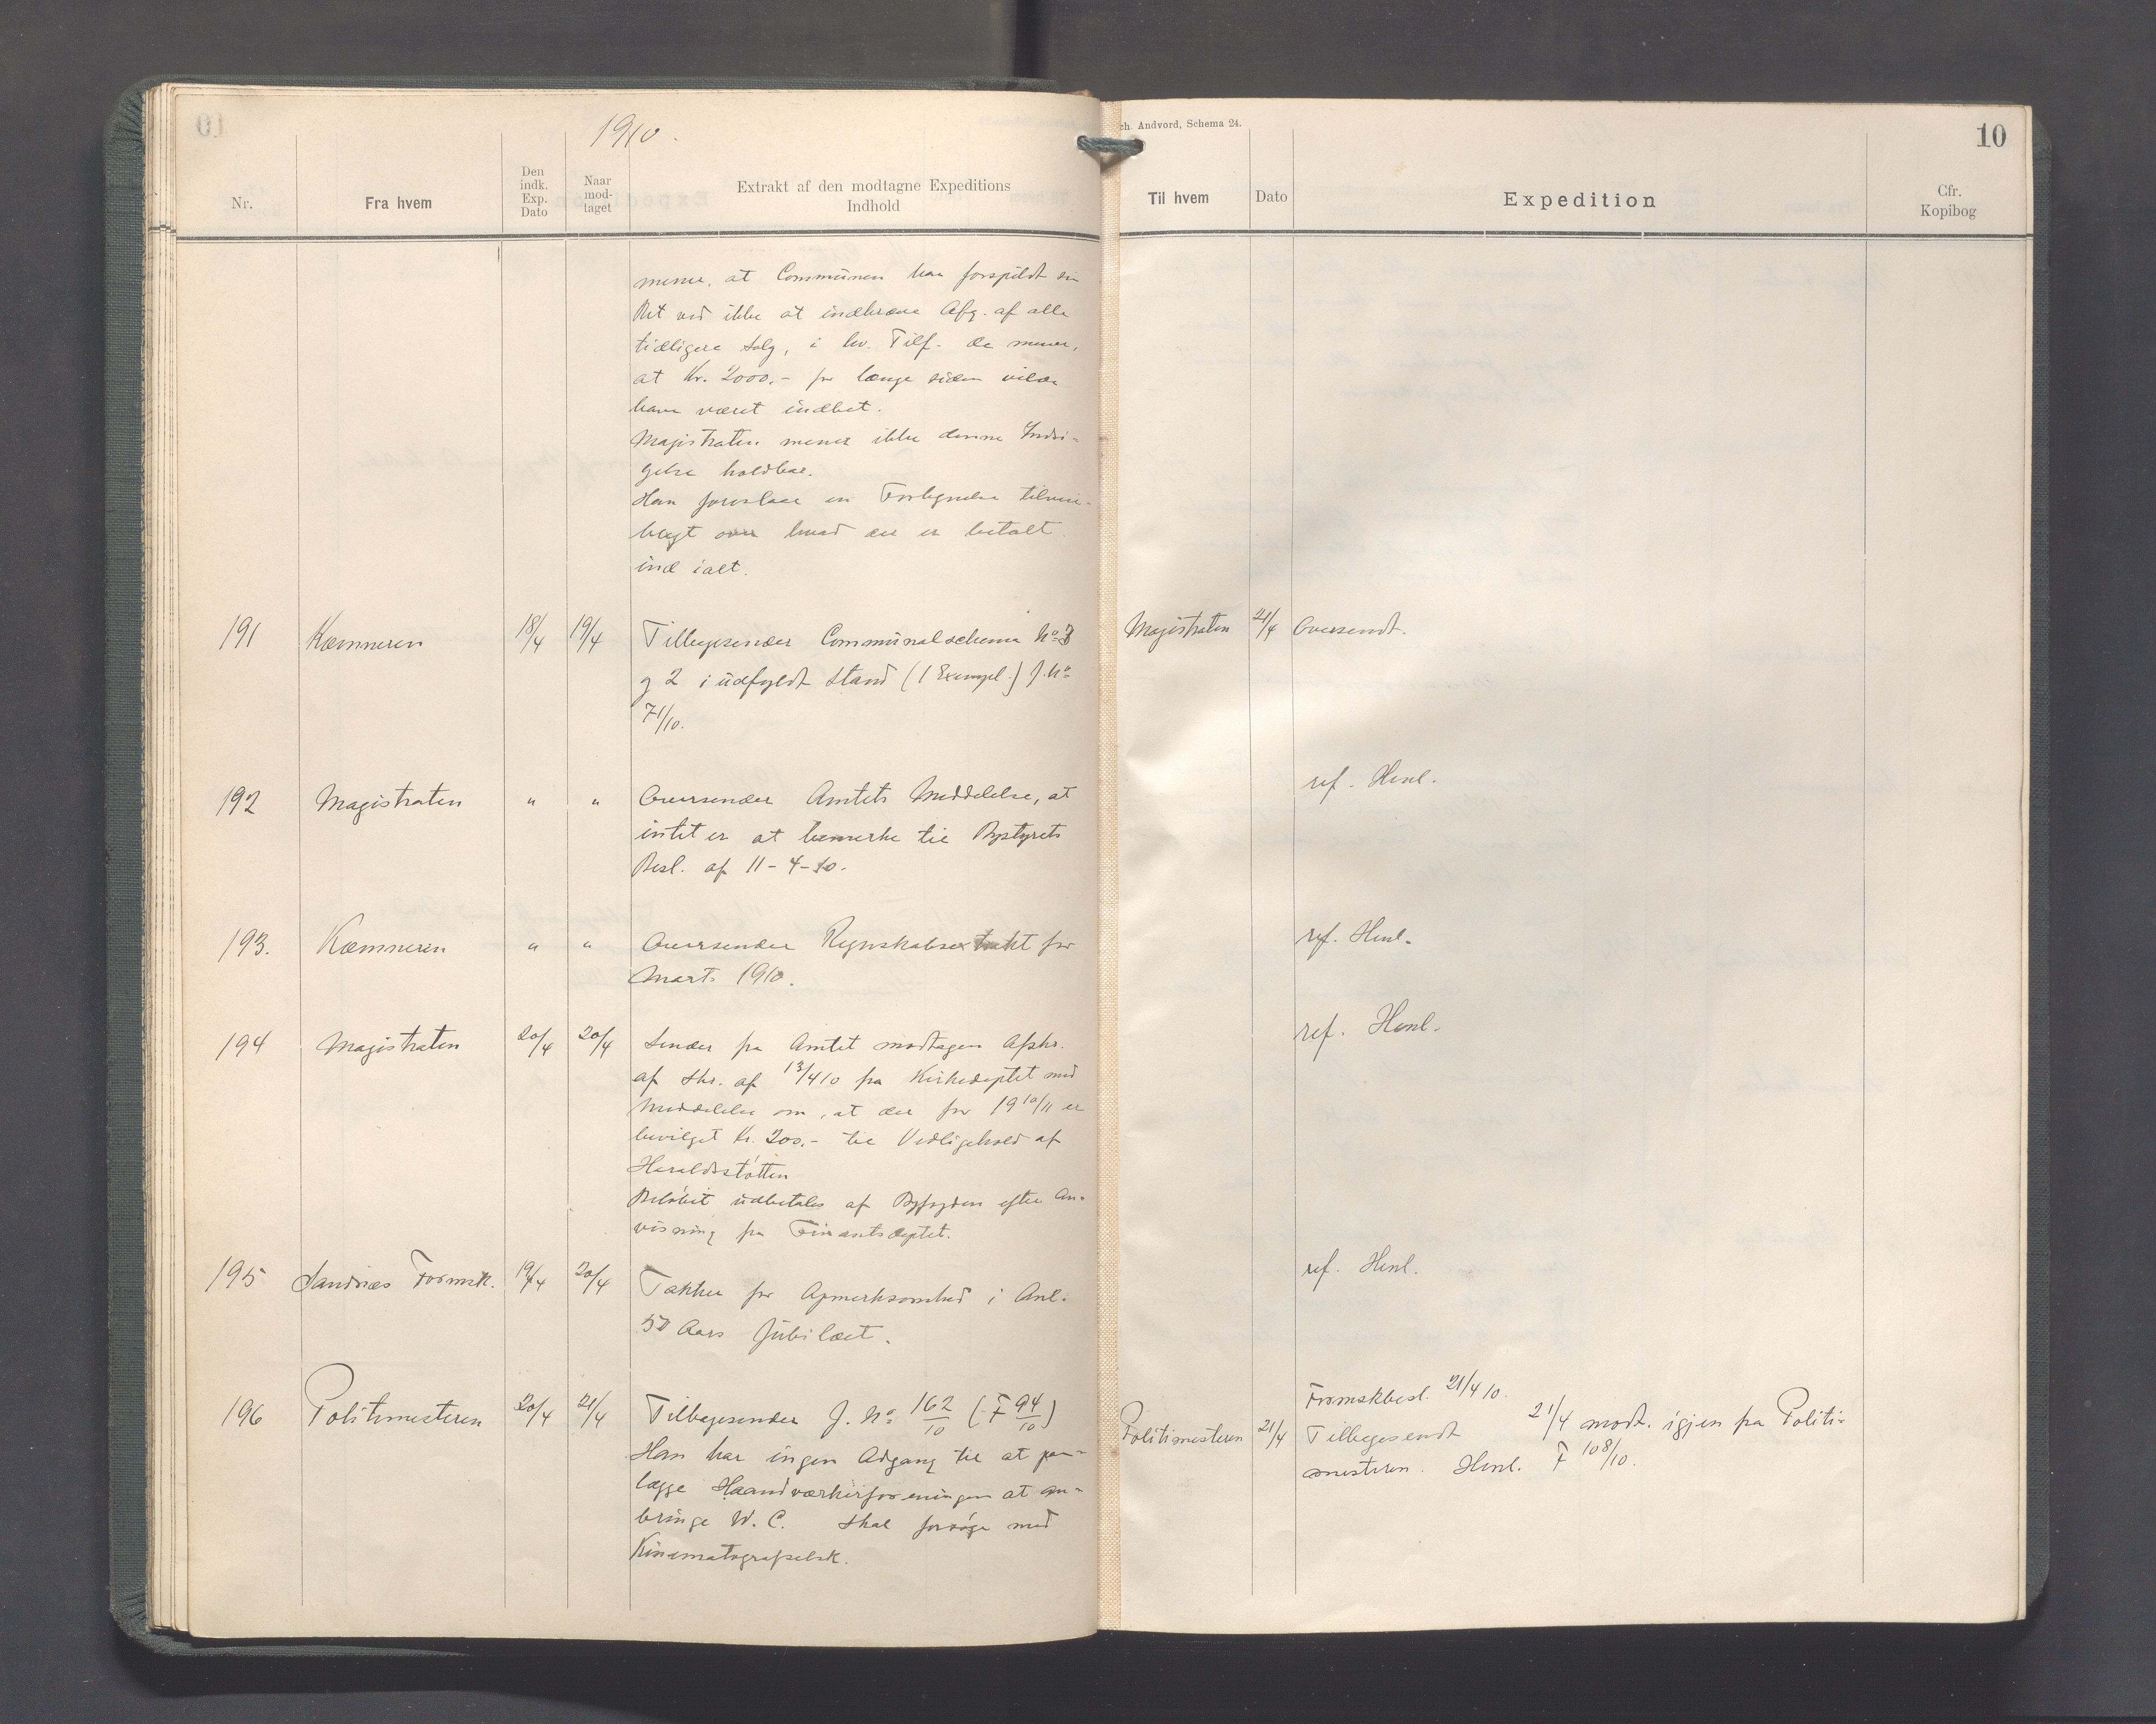 1910.
ch. Andvord, Schema 24.
10
Nr.
Fra hvem
Den indk. Exp. Dato
Naar mod- taget
Extrakt af den modtagne Expeditions
Indhold
Til hvem
Dato
Expedition
Cfr.
Kopibog
mener, at Communen har forspildt sin
Ret ved ikke at indkræve Afg. af alle
tidligere Salg, i hv. Tilf. de mener,
at Kr. 2000.- for længe siden vilde
have været indbet.
Magistraten mener ikke denne Indsi-
gelse holdbar.
Han foreslaar en Fortegnelse tilveie-
bragt over hvad der er betalt
ind ialt.
191 Kæmneren 18/4 19/4 Tilbagesender Communalschema No 3
og 2 i udfyldt Stand (1 Exempl.) J. No
71/10.
Magistraten 21/4 Oversendt.
192 Magistraten " " Oversender Amtets Meddelelse, at
intet er at bemerke til Bystyrets
Besl. af 11-4-10.
ref. Henl.
193. Kæmneren " " Oversender Regnskabsextrakt for
Marts 1910.
ref. Henl.
194 Magistraten 20/4 20/4 Sender fra Amtet modtagen Afskr.
af Skr. af 13/4 10 fra Kirkedeptet med
Meddelelse om, at der for 1910/11 er
bevilget Kr. 200,- til Vedligehold af
Haraldsstøtten
Beløbet udbetales af Byfogden efter An-
visning fra Finantsdeptet.
ref. Henl.
195 Sandnes Formsk. 19/4 20/4 Takker for Opmerksomhed i Anl.
50 Aars Jubilæet.
ref. Henl.
196 Politimesteren 20/4 21/4 Tilbagesender J. No 162/10 (F 94/10)
Han har ingen Adgang til at paa-
lægge Haandværkerforeningen at an-
bringe W. C. Skal forsøge med
Kinematografselsk.
Formskbesl. 21/4 10.
Politimesteren 21/4 Tilbagesendt 21/4 modt. igjen fra Politi-
mesteren. Henl. F 108/10.